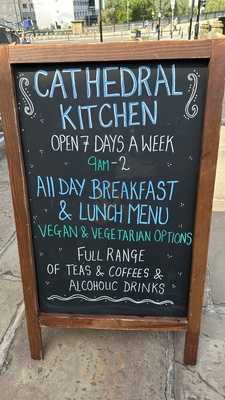 CATHEDRAL
KITCHEN
OPEN 7 DAYS A WEEK
9AM-2
All DAY BREAKFAST
& LUNCH MENU
VEGAN & VEGETARIAN OPTIONS
FULL RANGE
OF TEAS & COFFEES &
ALCOHOLIC DRINKS